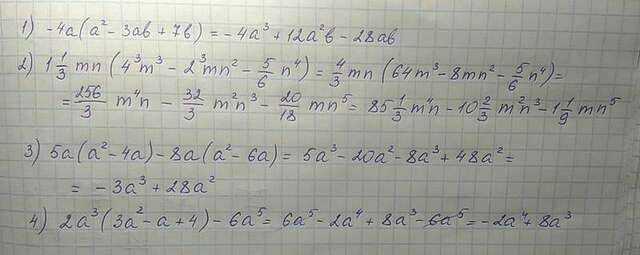 1) -4a(a² - 3ab + 7b) = -4a³ + 12a²b - 28ab
2) 1 1/3 mn (4³m³ - 2³mn² - 5/6 n⁴) = 4/3 mn (64m³ - 8mn² - 5/6 n⁴) =
= 256/3 m⁴n - 32/3 m²n³ - 20/18 mn⁵ = 85 1/3 m⁴n - 10 2/3 m²n³ - 1 1/9 mn⁵
3) 5a(a² - 4a) - 8a(a² - 6a) = 5a³ - 20a² - 8a³ + 48a² =
= -3a³ + 28a²
4) 2a³(3a² - a + 4) - 6a⁵ = 6a⁵ - 2a⁴ + 8a³ - 6a⁵ = -2a⁴ + 8a³